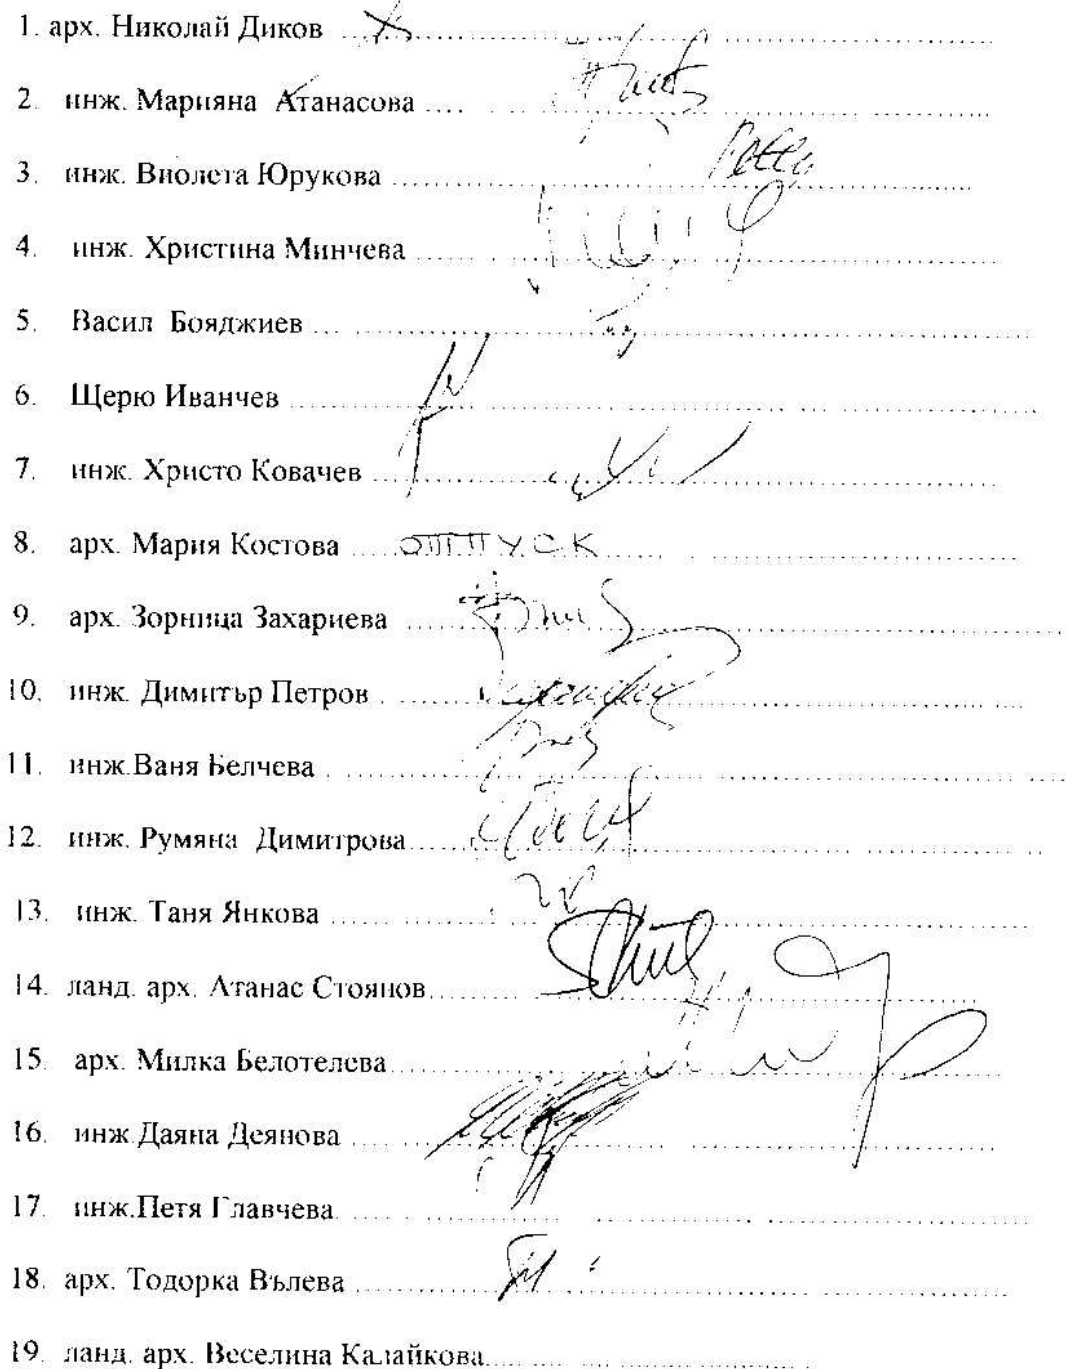 1. арх. Николай Диков
2. инж. Марияна Атанасова
3. инж. Виолета Юрукова
4. инж. Христина Минчева
5. Васил Бояджиев
6. Щерю Иванчев
7. инж. Христо Ковачев
8. арх. Мария Костова ОТПУСК
9. арх. Зорница Захариева
10. инж. Димитър Петров
11. инж.Ваня Белчева
12. инж. Румяна Димитрова
13. инж. Таня Янкова
14. ланд. арх. Атанас Стоянов
15. арх. Милка Белотелева
16. инж.Даяна Деянова
17. инж.Петя Главчева
18. арх. Тодорка Вълева
19. ланд. арх. Веселина Калайкова